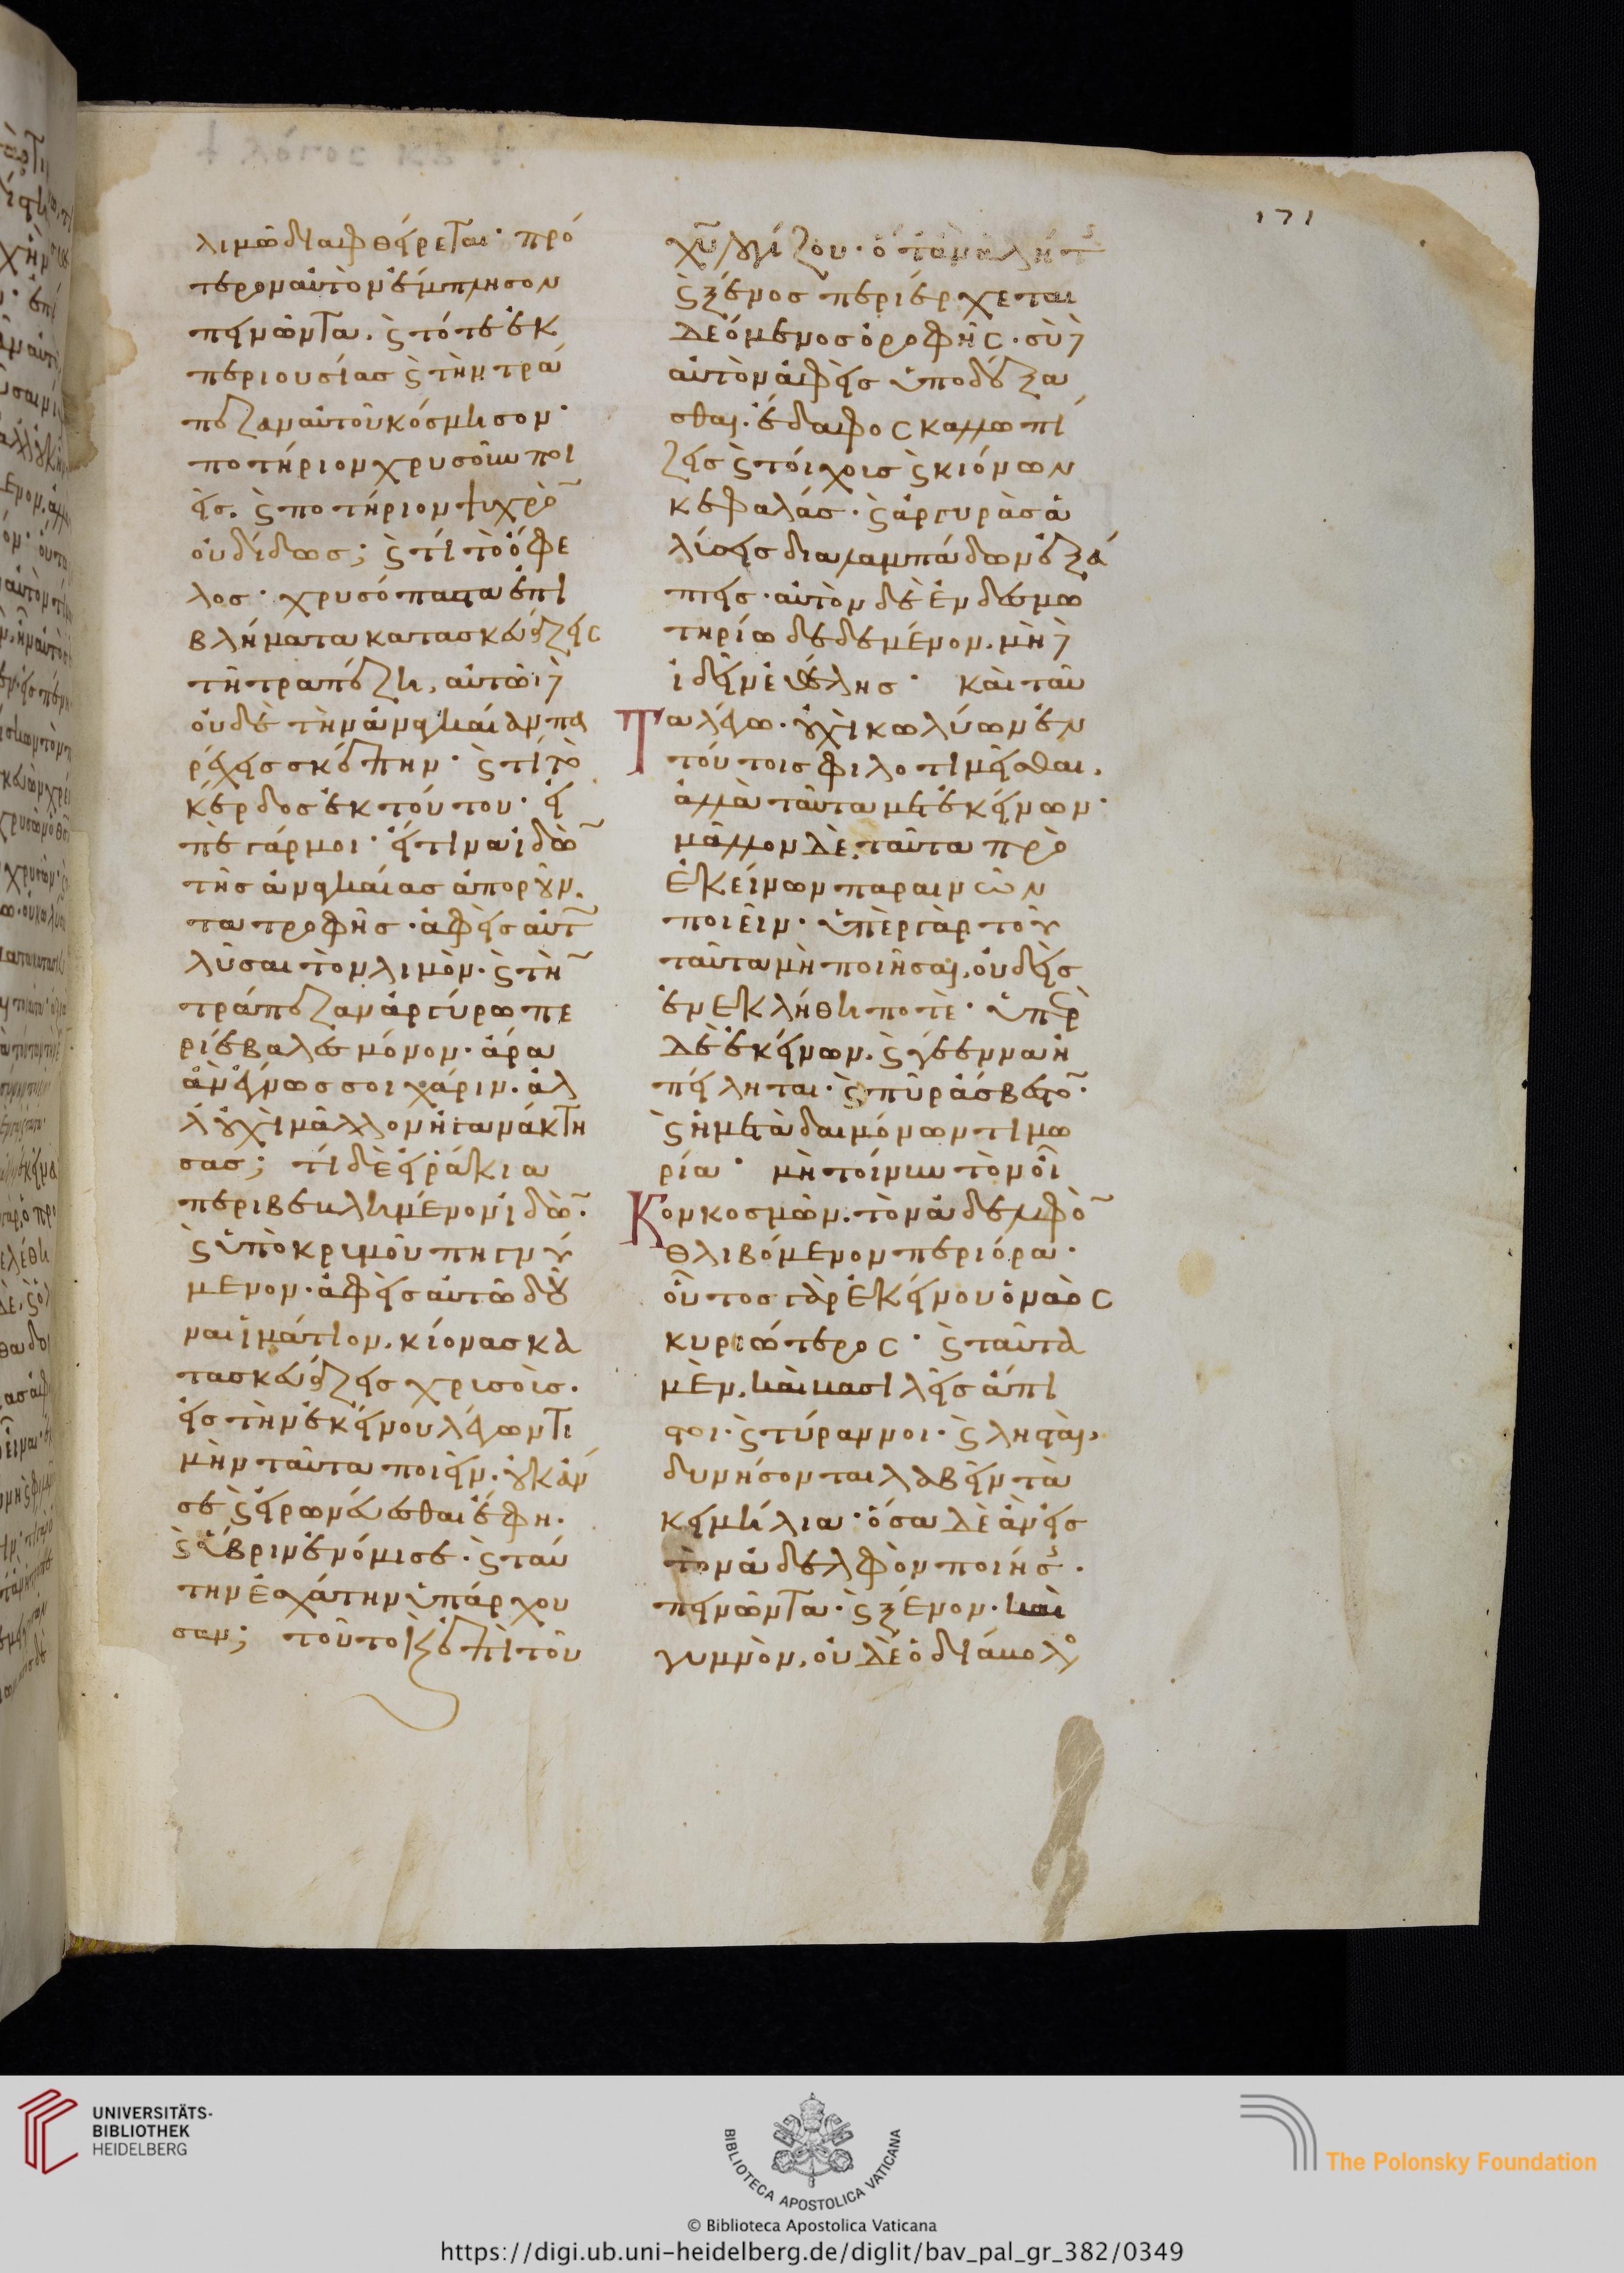 λιμῶ διαφθείρεται· πρό
τερον αὐτὸν ἔμπλησον
πεινῶντα. ϛ τότε ἐκ
περιουσίας ϛ τὴν τρά
πεζαν αὐτοῦ κόσμησον·
ποτήριον χρυσοῦν ποι
εῖς. ϛ ποτήριον ψυχρὸ̄
οὐ δίδως; ϛ τί τὸ ὄφε
λος· χρυσόπαστα ἐπι
βλήματα κατασκευάζεις
τῆ τραπέζη, αὐτῶ
οὐδὲ τὴν ἀναγκαίαν πα
ρέχεις σκέπην· ϛ τί τὸ
κέρδος ἐκ τούτου· εἰ
πὲ γάρ μοι· εἴ τινα ἰδὼ̄
τῆς ἀναγκαίας ἀποροῦν
τα τροφῆς· ἀφεὶς αὐτ̄
λῦσαι τὸν λιμὸν· ϛ τὴ̄
τράπεζαν ἀργύρω πε
ριέβαλες μόνον· ἄρα
ἂν ἔγνως σοι χάριν· ἀλ
λ' οὐχὶ μᾶλλον ἠγανάκτη
σας; τί δὲ εἰ ῥάκια
περιβεβλημένον ἰδὼ̄.
ϛ ὑπὸ κριμοῦ πηγνύ
μενον· ἀφεὶς αὐτῶ δοῦ
ναι ἱμάτιον, κίονας κα
τασκευάζεις χρισοῖς.
εἰς τὴν ἐκείνου λέγων τι
μὴν ταῦτα ποιεῖν. οὐκ ἄν
σε ϛ εἰρωνεύεσθαι ἔφη.
ϛ ὕβριν ἐνόμισε· ϛ ταύ
την ἐσχάτην ὑπάρχου
σαν; τοῦτο ϛ ἐπὶ τοῦ
171
χ̄υ λογίζου· ὅταν ἀλήτ
ϛ ξένος περιέρχεται
δεόμενος ὀροφῆς· σὺ
αὐτὸν ἀφεὶς ὑποδέξα
σθαι. ἔδαφος καλλωπί
ζεις ϛ τοίχοις ϛ κιόνων
κεφαλάς· ϛ ἀργυρὰς ἁ
λύσεις διαλαμπάδων ἐξά
πτεις· αὐτὸν δὲ ἐν δεσμω
τηρίω δεδεμένον. μὴ
ἰδεῖν ἐθέλης· καὶ ταῦ
τα λέγω. οὐχὶ κωλύων ἐν
τούτοις φιλοτιμεῖσθαι.
ἀλλὰ ταῦτα μετ ἐκείνων·
μᾶλλον δὲ, ταῦτα πρὸ
ἐκείνων παραινῶν
ποιεῖν· ὑπὲρ γὰρ τοῦ
ταῦτα μὴ ποιῆσαι, οὐδεὶς
ἐνεκλήθη ποτὲ· ὑπὲρ
δὲ ἐκείνων. ϛ γέεννα ἠ
πείληται· ϛ πῦρ ἄσβεστο̄·
ϛ ἡ μετὰ δαιμόνων τιμω
ρία· μὴ τοίνυν τὸν οἶ
κον κοσμῶν. τὸν ἀδελφὸ̄
θλιβόμενον περιόρα·
οὗτος γὰρ ἐκείνου ὁ ναὸς
κυριώτερος· ϛ ταῦτα
μὲν, καὶ βασιλεῖς ἄπι
στοι· ϛ τύραννοι· ϛ λησταὶ,
δυνήσονται λαβεῖν τὰ
κειμήλια· ὅσα δὲ ἂν εἰς
τὸν ἀδελφὸν ποιήσ·
πεινῶντα· ϛ ξένον· καὶ
γυμνὸν, οὐδὲ ὁ διάβολο
UNIVERSITÄTS-
BIBLIOTHEK
HEIDELBERG
BIBLIOTECA APOSTOLICA VATICANA
© Biblioteca Apostolica Vaticana
The Polonsky Foundation
https://digi.ub.uni-heidelberg.de/diglit/bav_pal_gr_382/0349